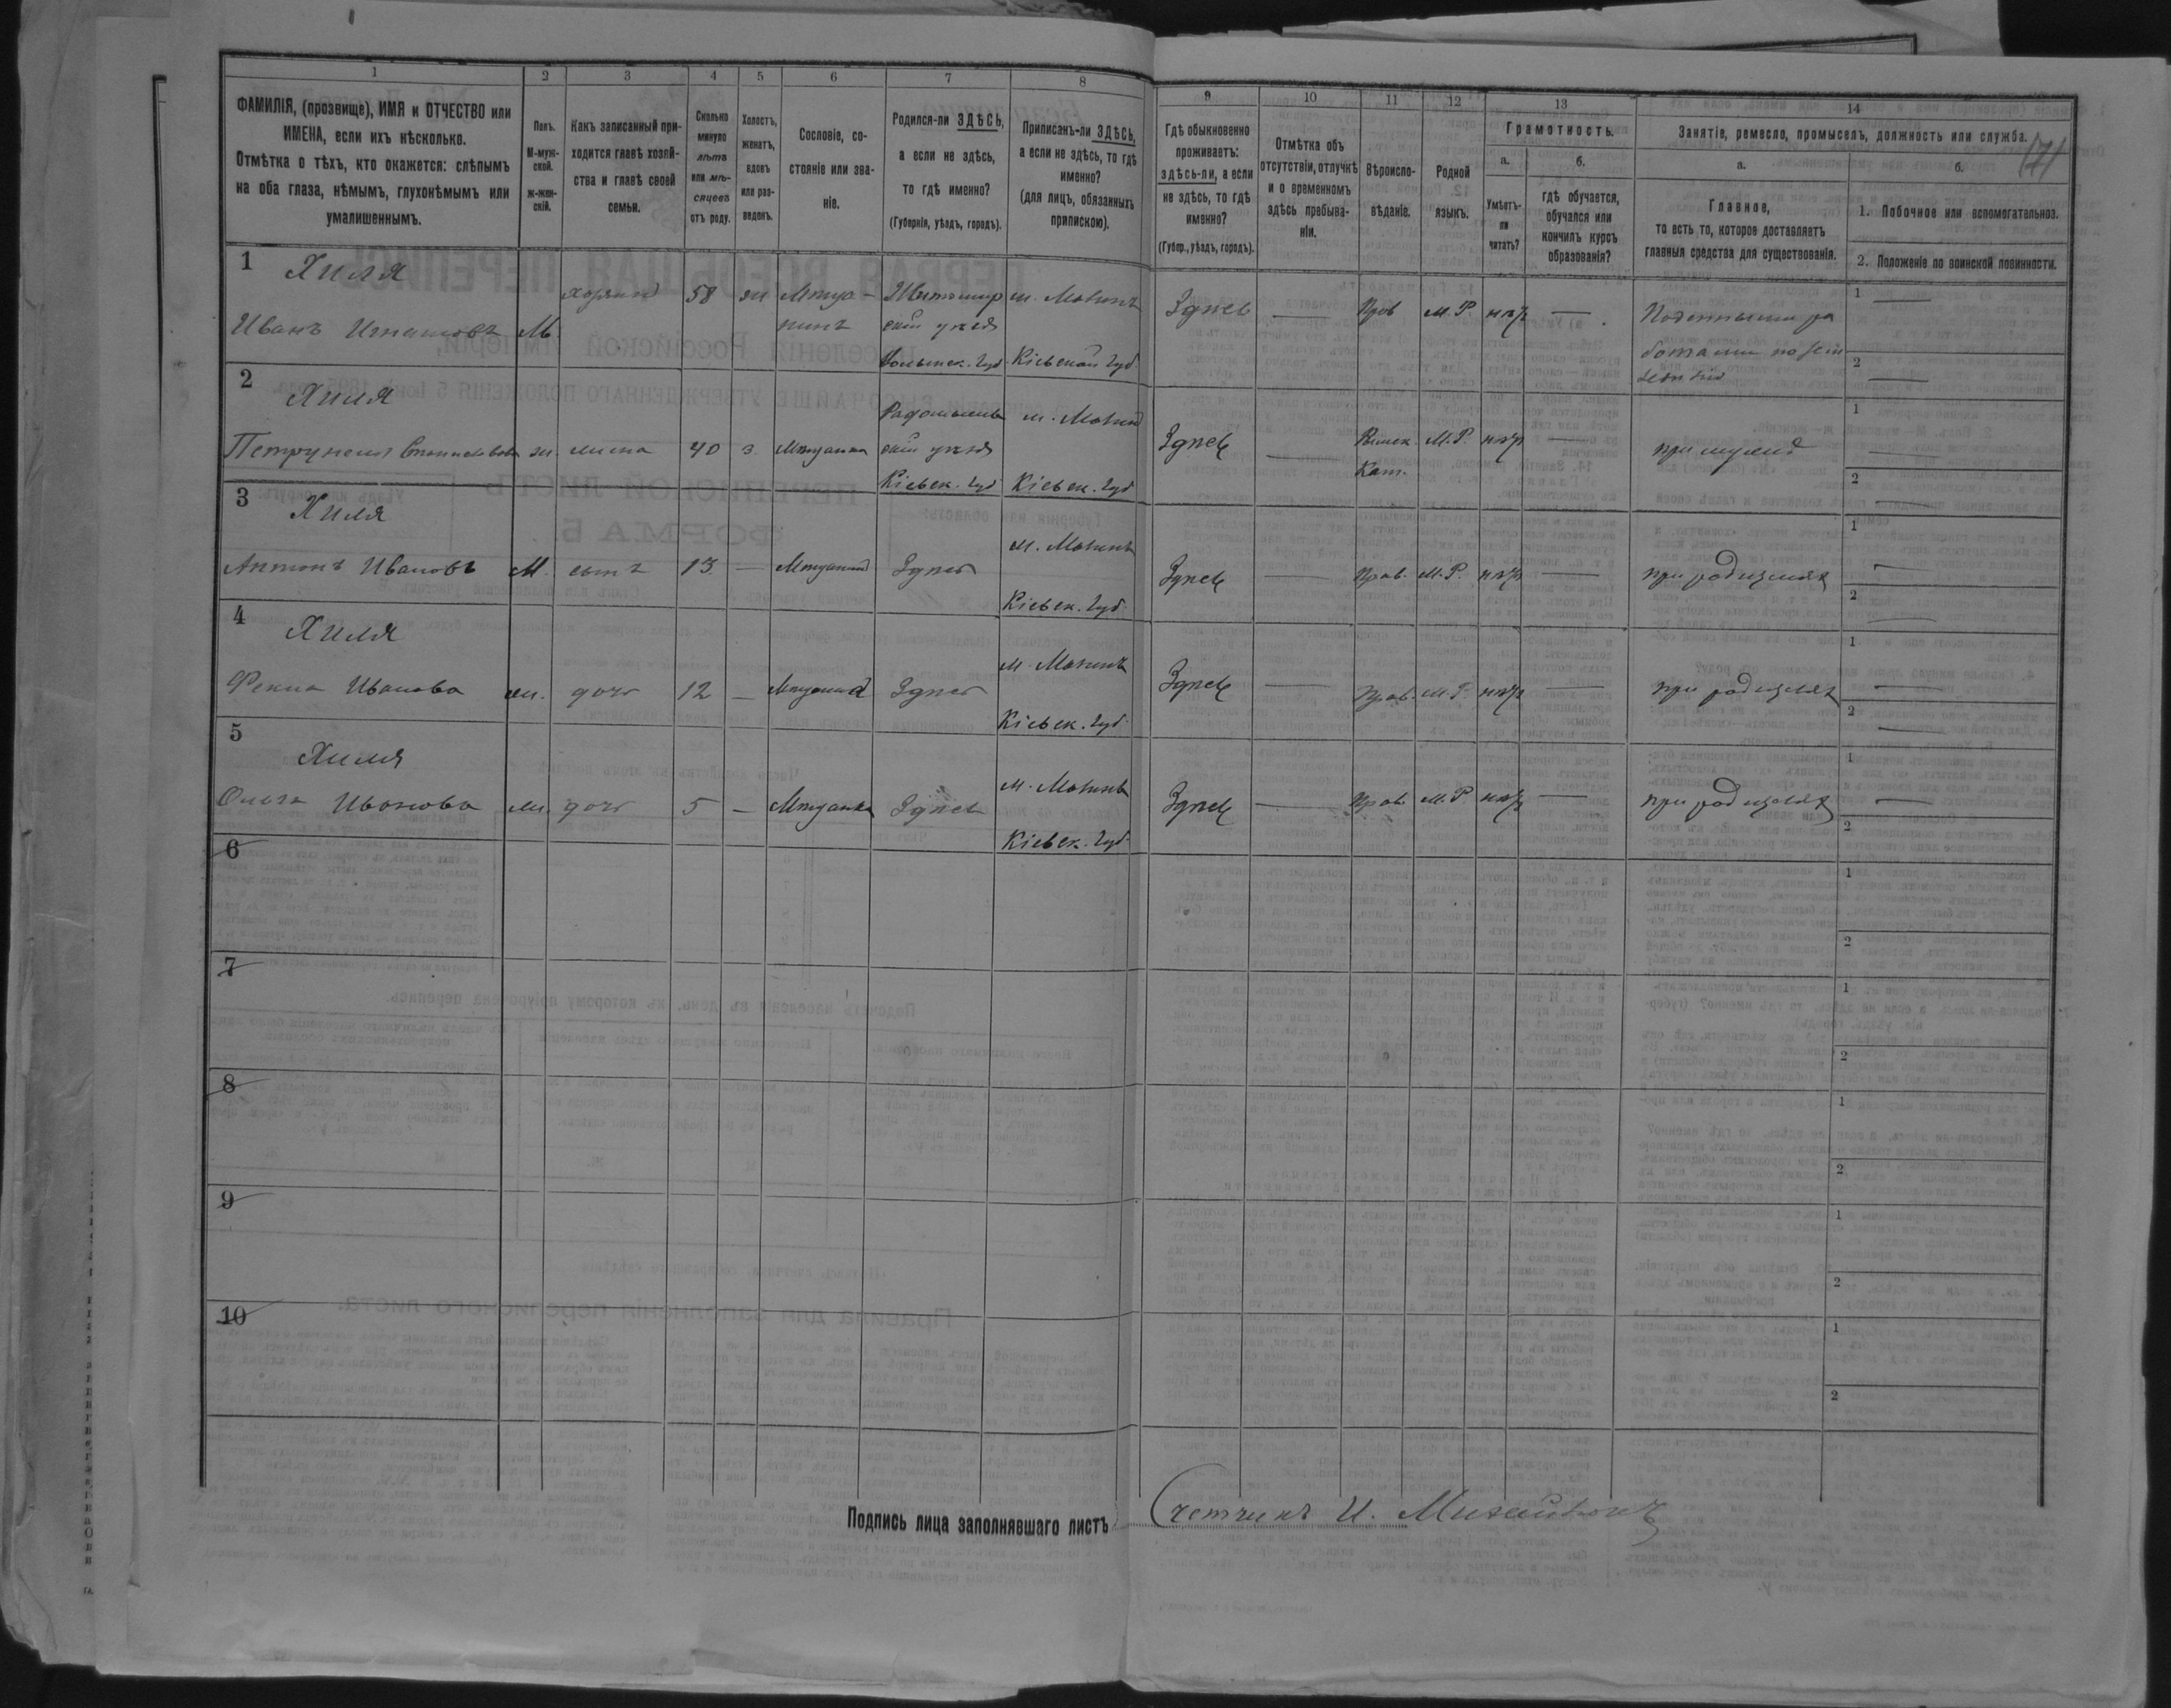 1 2 3 4 5 6 7 8 9 10 11 12 13 14
ФАМИЛІЯ, (прозвище), ИМЯ и ОТЧЕСТВО или
ИМЕНА, если ихъ нѣсколько.
Отмѣтка о тѣхъ, кто окажется: слѣпымъ
на оба глаза, нѣмымъ, глухонѣмымъ или
умалишеннымъ.
Полъ.
М-муж-
ской.
ж-жен-
скій.
Какъ записанный при-
ходится главѣ хозяй-
ства и главѣ своей
семьи.
Сколько
минуло
лѣтъ
или мѣ-
сяцевъ
отъ роду.
Холостъ,
женатъ,
вдовъ
или раз-
веденъ.
Сословіе, со-
стояніе или зва-
ніе.
Родился-ли ЗДѢСЬ,
а если не здѣсь,
то гдѣ именно?
(Губернія, уѣздъ, городъ).
Приписанъ-ли ЗДѢСЬ,
а если не здѣсь, то гдѣ
именно?
(для лицъ, обязанныхъ
припискою).
Гдѣ обыкновенно
проживаетъ:
здѣсь-ли, а если
не здѣсь, то гдѣ
именно?
(Губер., уѣздъ, городъ).
Отмѣтка объ
отсутствіи, отлучкѣ
и о временномъ
здѣсь пребыва-
ніи.
Вѣроиспо-
вѣданіе.
Родной
языкъ.
Грамотность.
а.
Умѣетъ-
ли
читать?
б.
гдѣ обучается,
обучался или
кончилъ курсъ
образованія?
Занятіе, ремесло, промыселъ, должность или служба.
171
а.
Главное,
то есть то, которое доставляетъ
главныя средства для существованія.
б.
1. Побочное или вспомогательное.
2. Положеніе по воинской повинности.
1 Хиля
Иванъ Игнатовъ М хозяинъ 58 ж Мѣща-
нинъ
Житомир
скій уѣздъ
Волынск. губ
м. Малинъ
Кіевской губ.
Здѣсь — Прав М.Р. нѣтъ —
Поденными ра
ботами
1 —
2 —
2 Хиля
Петрунеля Станиславова ж. жена 40 з. Мѣщанка
Радомысль
скій уѣздъ
Кіевск. губ
м. Малинъ
Кіевск. губ
Здѣсь — Римск.
Кат.
М.Р. нѣтъ — при мужѣ
1 —
2 —
3 Хиля
Антонъ Ивановъ М. сынъ 13 — Мѣщанинъ Здѣсь
м. Малинъ
Кіевск. губ.
Здѣсь — Прав. М.Р. нѣтъ — при родителяхъ
1 —
2 —
4 Хиля
Фекла Иванова ж. дочь 12 — Здѣсь
м. Малинъ
Кіевск. губ.
Здѣсь — Прав. М.Р. нѣтъ — при родителяхъ
1 —
2 —
5 Хиля
Ольга Иванова ж. дочь 5 — Мѣщанка Здѣсь
м. Малинъ
Кіевск. губ.
Здѣсь — Прав М.Р нѣтъ — при родителяхъ
1 —
2
6
1
2
7
1
2
8
1
2
9
1
2
10
1
2
Подпись лица заполнявшаго листъ Счетчикъ И.